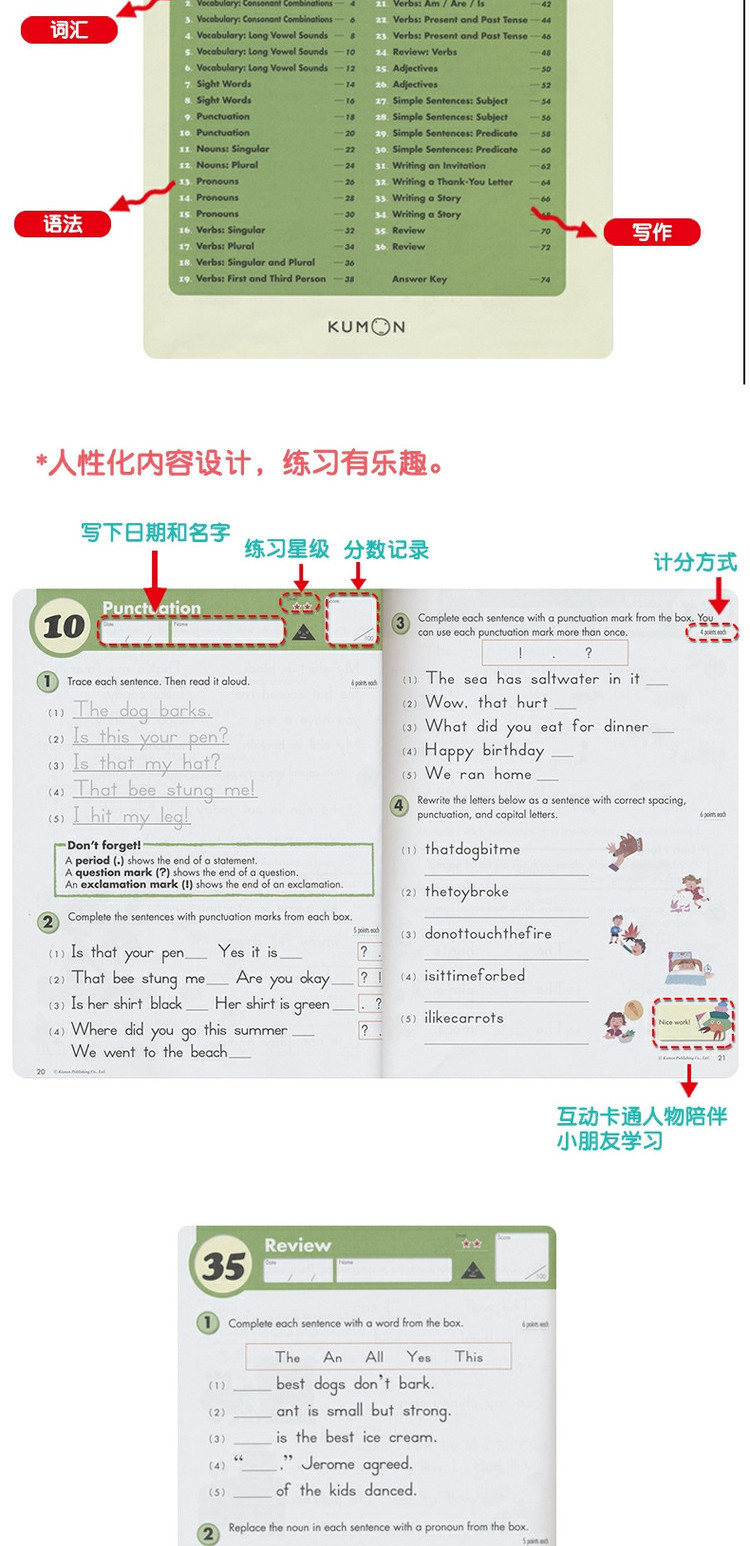 词汇
2. Vocabulary: Consonant Combinations — 4
3. Vocabulary: Consonant Combinations — 6
4. Vocabulary: Long Vowel Sounds — 8
5. Vocabulary: Long Vowel Sounds — 10
6. Vocabulary: Long Vowel Sounds — 12
7. Sight Words — 14
8. Sight Words — 16
9. Punctuation — 18
10. Punctuation — 20
11. Nouns: Singular — 22
12. Nouns: Plural — 24
13. Pronouns — 26
14. Pronouns — 28
15. Pronouns — 30
16. Verbs: Singular — 32
17. Verbs: Plural — 34
18. Verbs: Singular and Plural — 36
19. Verbs: First and Third Person — 38
21. Verbs: Am / Are / Is — 42
22. Verbs: Present and Past Tense — 44
23. Verbs: Present and Past Tense — 46
24. Review: Verbs — 48
25. Adjectives — 50
26. Adjectives — 52
27. Simple Sentences: Subject — 54
28. Simple Sentences: Subject — 56
29. Simple Sentences: Predicate — 58
30. Simple Sentences: Predicate — 60
31. Writing an Invitation — 62
32. Writing a Thank-You Letter — 64
33. Writing a Story — 66
34. Writing a Story — 68
35. Review — 70
36. Review — 72
Answer Key — 74
语法
写作
KUMON
*人性化内容设计，练习有乐趣。
写下日期和名字
练习星级
分数记录
计分方式
10
Punctuation
Date
/ /
Name
Level
Score
/100
1 Trace each sentence. Then read it aloud.
6 points each
(1) The dog barks.
(2) Is this your pen?
(3) Is that my hat?
(4) That bee stung me!
(5) I hit my leg!
Don't forget!
A period (.) shows the end of a statement.
A question mark (?) shows the end of a question.
An exclamation mark (!) shows the end of an exclamation.
2 Complete the sentences with punctuation marks from each box.
5 points each
(1) Is that your pen___ Yes it is___ ? .
(2) That bee stung me___ Are you okay___ ? !
(3) Is her shirt black___ Her shirt is green___ . ?
(4) Where did you go this summer___ ? .
We went to the beach___
20
© Kumon Publishing Co., Ltd.
3 Complete each sentence with a punctuation mark from the box. You
can use each punctuation mark more than once.
4 points each
! . ?
(1) The sea has saltwater in it___
(2) Wow, that hurt___
(3) What did you eat for dinner___
(4) Happy birthday___
(5) We ran home___
4 Rewrite the letters below as a sentence with correct spacing,
punctuation, and capital letters.
6 points each
(1) thatdogbitme
(2) thetoybroke
(3) donottouchthefire
(4) isittimeforbed
(5) ilikecarrots
Nice work!
© Kumon Publishing Co., Ltd. 21
互动卡通人物陪伴
小朋友学习
35
Review
Date
/ /
Name
Level
Score
/100
1 Complete each sentence with a word from the box.
6 points each
The An All Yes This
(1) _____ best dogs don't bark.
(2) _____ ant is small but strong.
(3) _____ is the best ice cream.
(4) “_____.” Jerome agreed.
(5) _____ of the kids danced.
2 Replace the noun in each sentence with a pronoun from the box.
5 points each